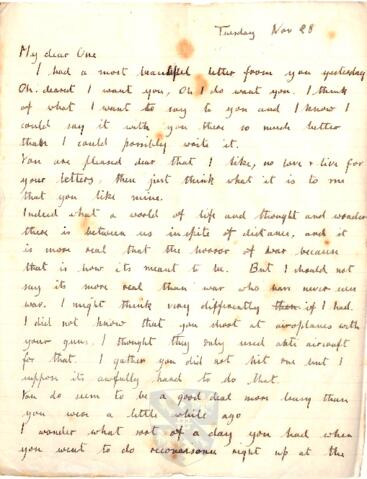 Tuesday Nov 28
My dear One
I had a most beautiful letter from you yesterday
Oh. dearest I want you, Oh I do want you. I think
of what I want to say to you and I know I
could say it with you there so much better
than I could possibly write it.
You are pleased dear that I like, no love & live for
your letters, then just think what it is to me
that you like mine.
Indeed what a world of life and thought and wonder
there is between us inspite of distance, and it
is more real that the horror of war because
that is how its meant to be. But I should not
say its more real than war who has never seen
war. I might think very differently if I had.
I did not know that you shoot at airoplanes with
your guns. I thought they only used anti aircraft
for that. I gather you did not hit one but I
suppose its awfully hard to do that.
You do seem to be a good deal more busy than
you were a little while ago
I wonder what sort of a day you had when
you went to do reconaisance right up at the